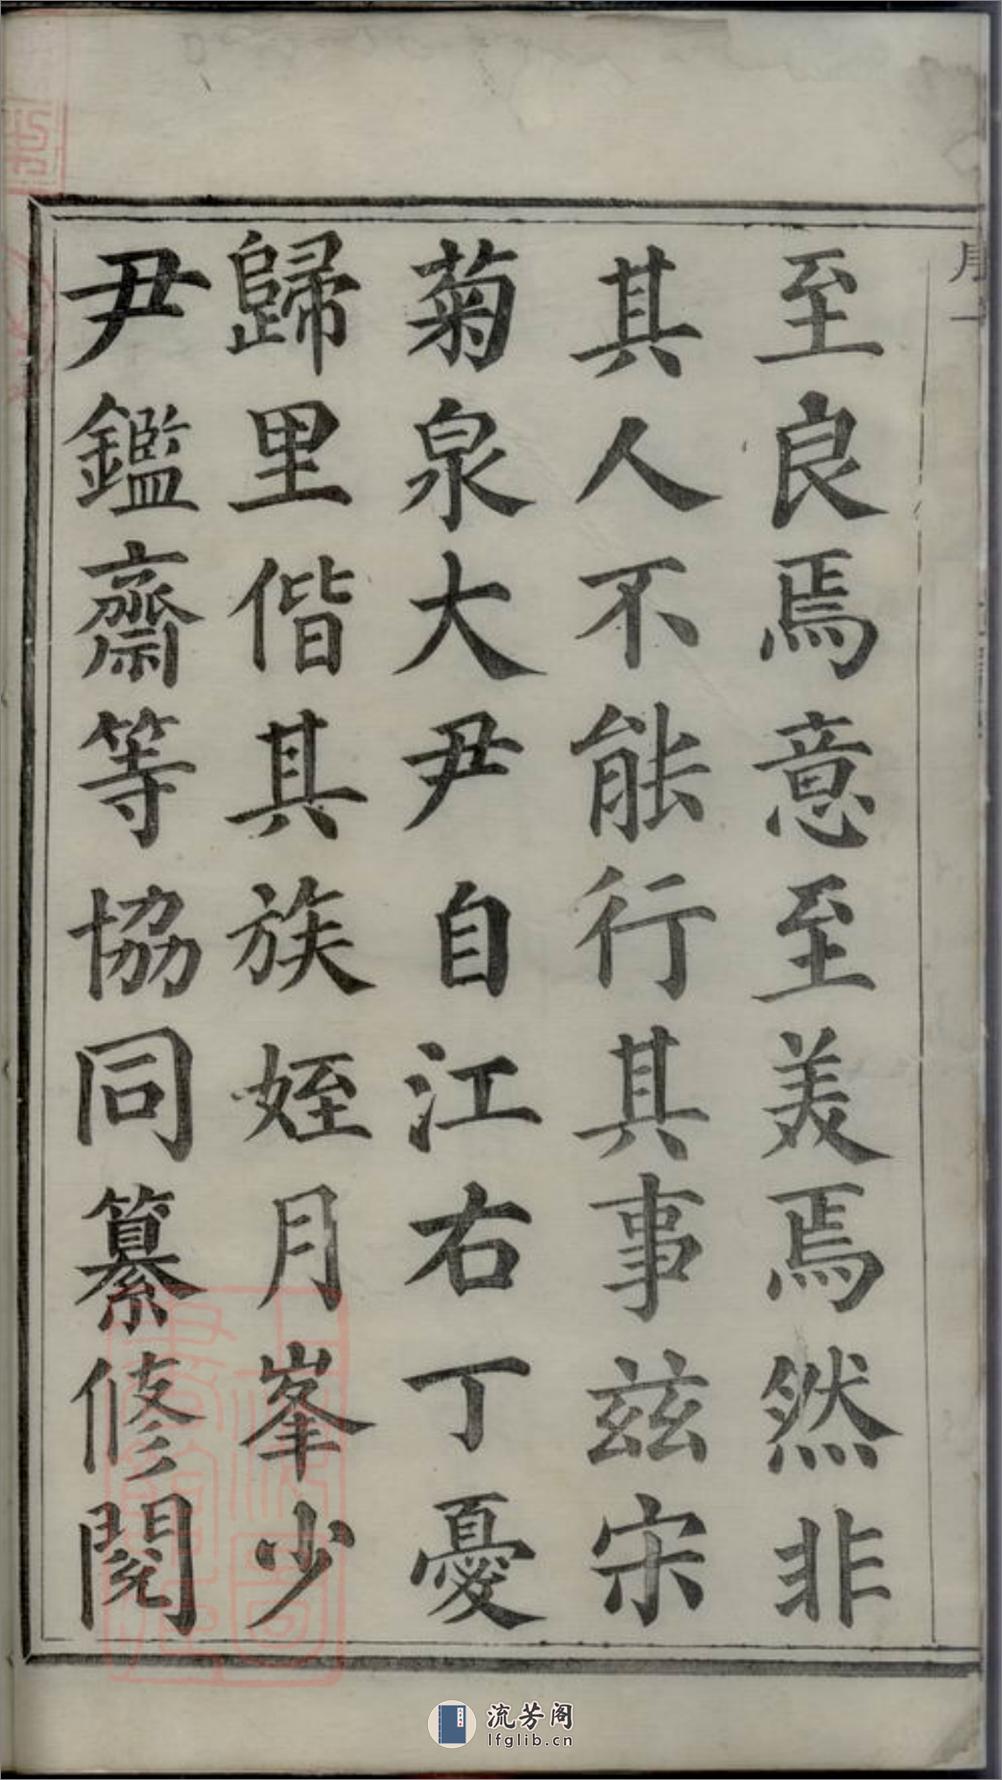 序一
至良焉意至美焉然非
其人不能行其事兹宋
菊泉大尹自江右丁憂
歸里偕其族姪月峯少
尹鑑齋等協同纂修閱
流芳阁
lfglib.cn